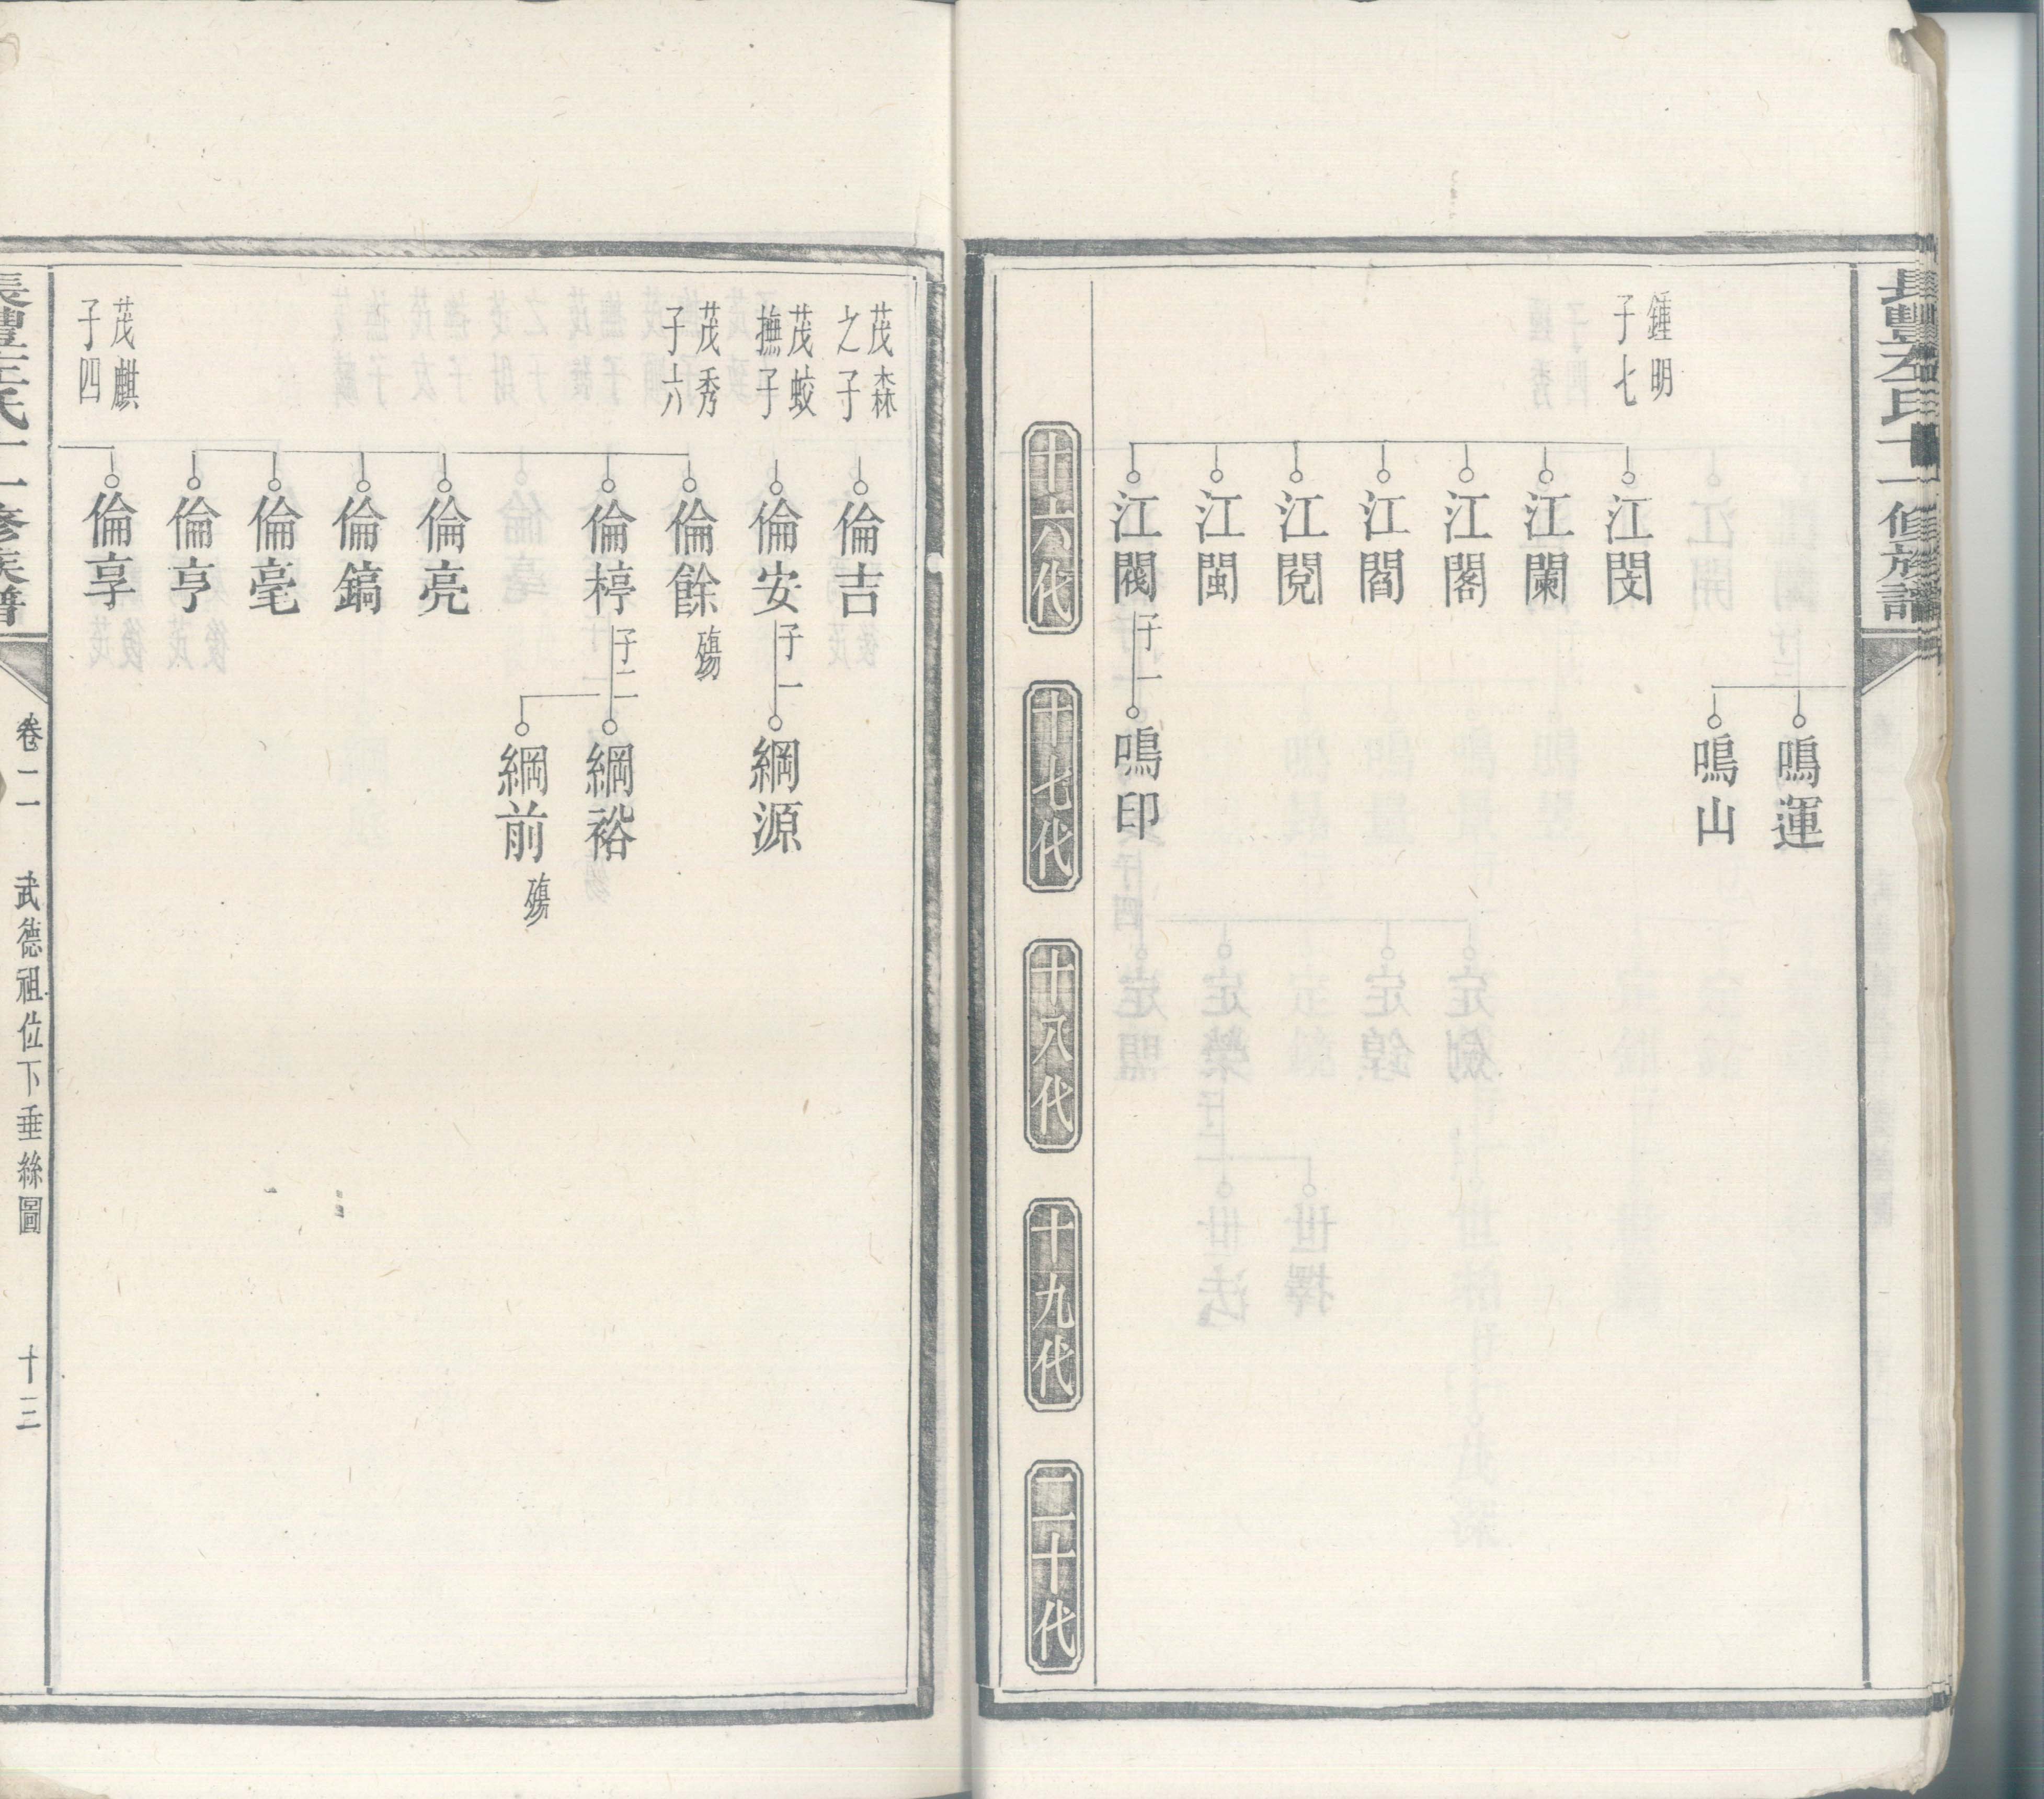 長豐左氏十一修族譜
鳴運
鳴山
鍾明
子七
江閔
江闌
江閣
江閻
江閱
江閩
江閥
子一
鳴印
十六代
十七代
十八代
十九代
二十代
茂森
之子
倫吉
茂蛟
撫子
倫安
子一
綱源
茂秀
子六
倫餘
殤
倫楟
子二
綱裕
綱前
殤
倫亮
倫鎬
倫毫
倫亨
茂麒
子四
倫享
卷二
武德祖位下垂絲圖
十三